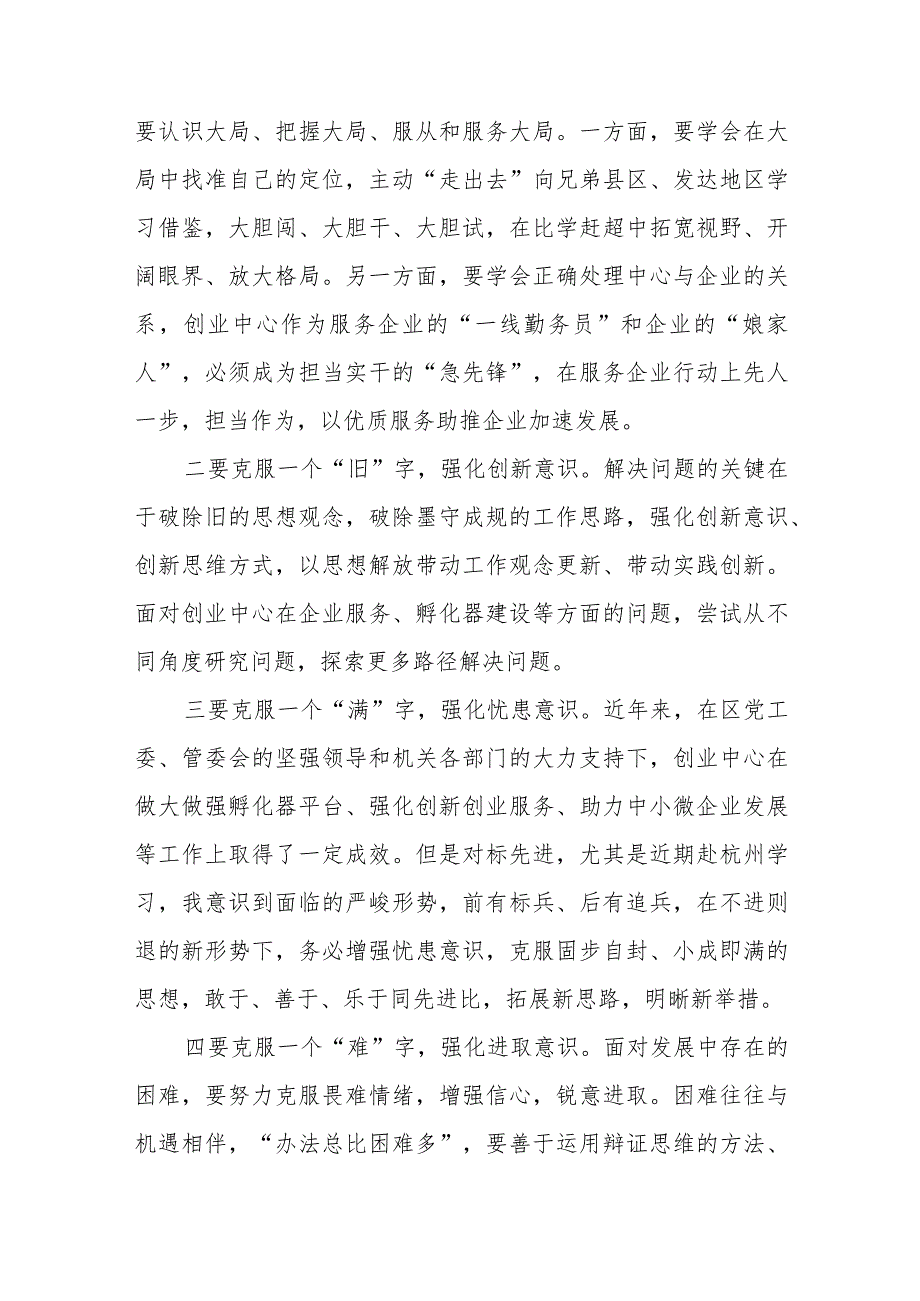 要认识大局、把握大局、服从和服务大局。一方面，要学会在大
局中找准自己的定位，主动“走出去”向兄弟县区、发达地区学
习借鉴，大胆闯、大胆干、大胆试，在比学赶超中拓宽视野、开
阔眼界、放大格局。另一方面，要学会正确处理中心与企业的关
系，创业中心作为服务企业的“一线勤务员”和企业的“娘家
人”，必须成为担当实干的“急先锋”，在服务企业行动上先人
一步，担当作为，以优质服务助推企业加速发展。
二要克服一个“旧”字，强化创新意识。解决问题的关键在
于破除旧的思想观念，破除墨守成规的工作思路，强化创新意识、
创新思维方式，以思想解放带动工作观念更新、带动实践创新。
面对创业中心在企业服务、孵化器建设等方面的问题，尝试从不
同角度研究问题，探索更多路径解决问题。
三要克服一个“满”字，强化忧患意识。近年来，在区党工
委、管委会的坚强领导和机关各部门的大力支持下，创业中心在
做大做强孵化器平台、强化创新创业服务、助力中小微企业发展
等工作上取得了一定成效。但是对标先进，尤其是近期赴杭州学
习，我意识到面临的严峻形势，前有标兵、后有追兵，在不进则
退的新形势下，务必增强忧患意识，克服固步自封、小成即满的
思想，敢于、善于、乐于同先进比，拓展新思路，明晰新举措。
四要克服一个“难”字，强化进取意识。面对发展中存在的
困难，要努力克服畏难情绪，增强信心，锐意进取。困难往往与
机遇相伴，“办法总比困难多”，要善于运用辩证思维的方法、